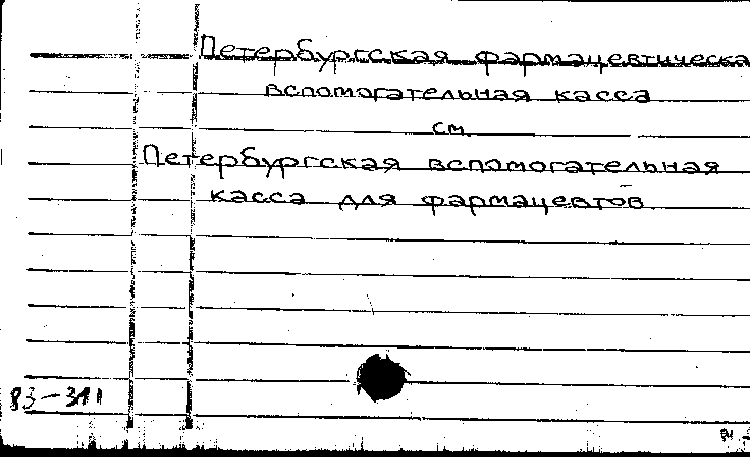 Петербургская фармацевтическа
вспомогательная касса
см.
Петербургская вспомогательная
касса для фармацевтов
83-311